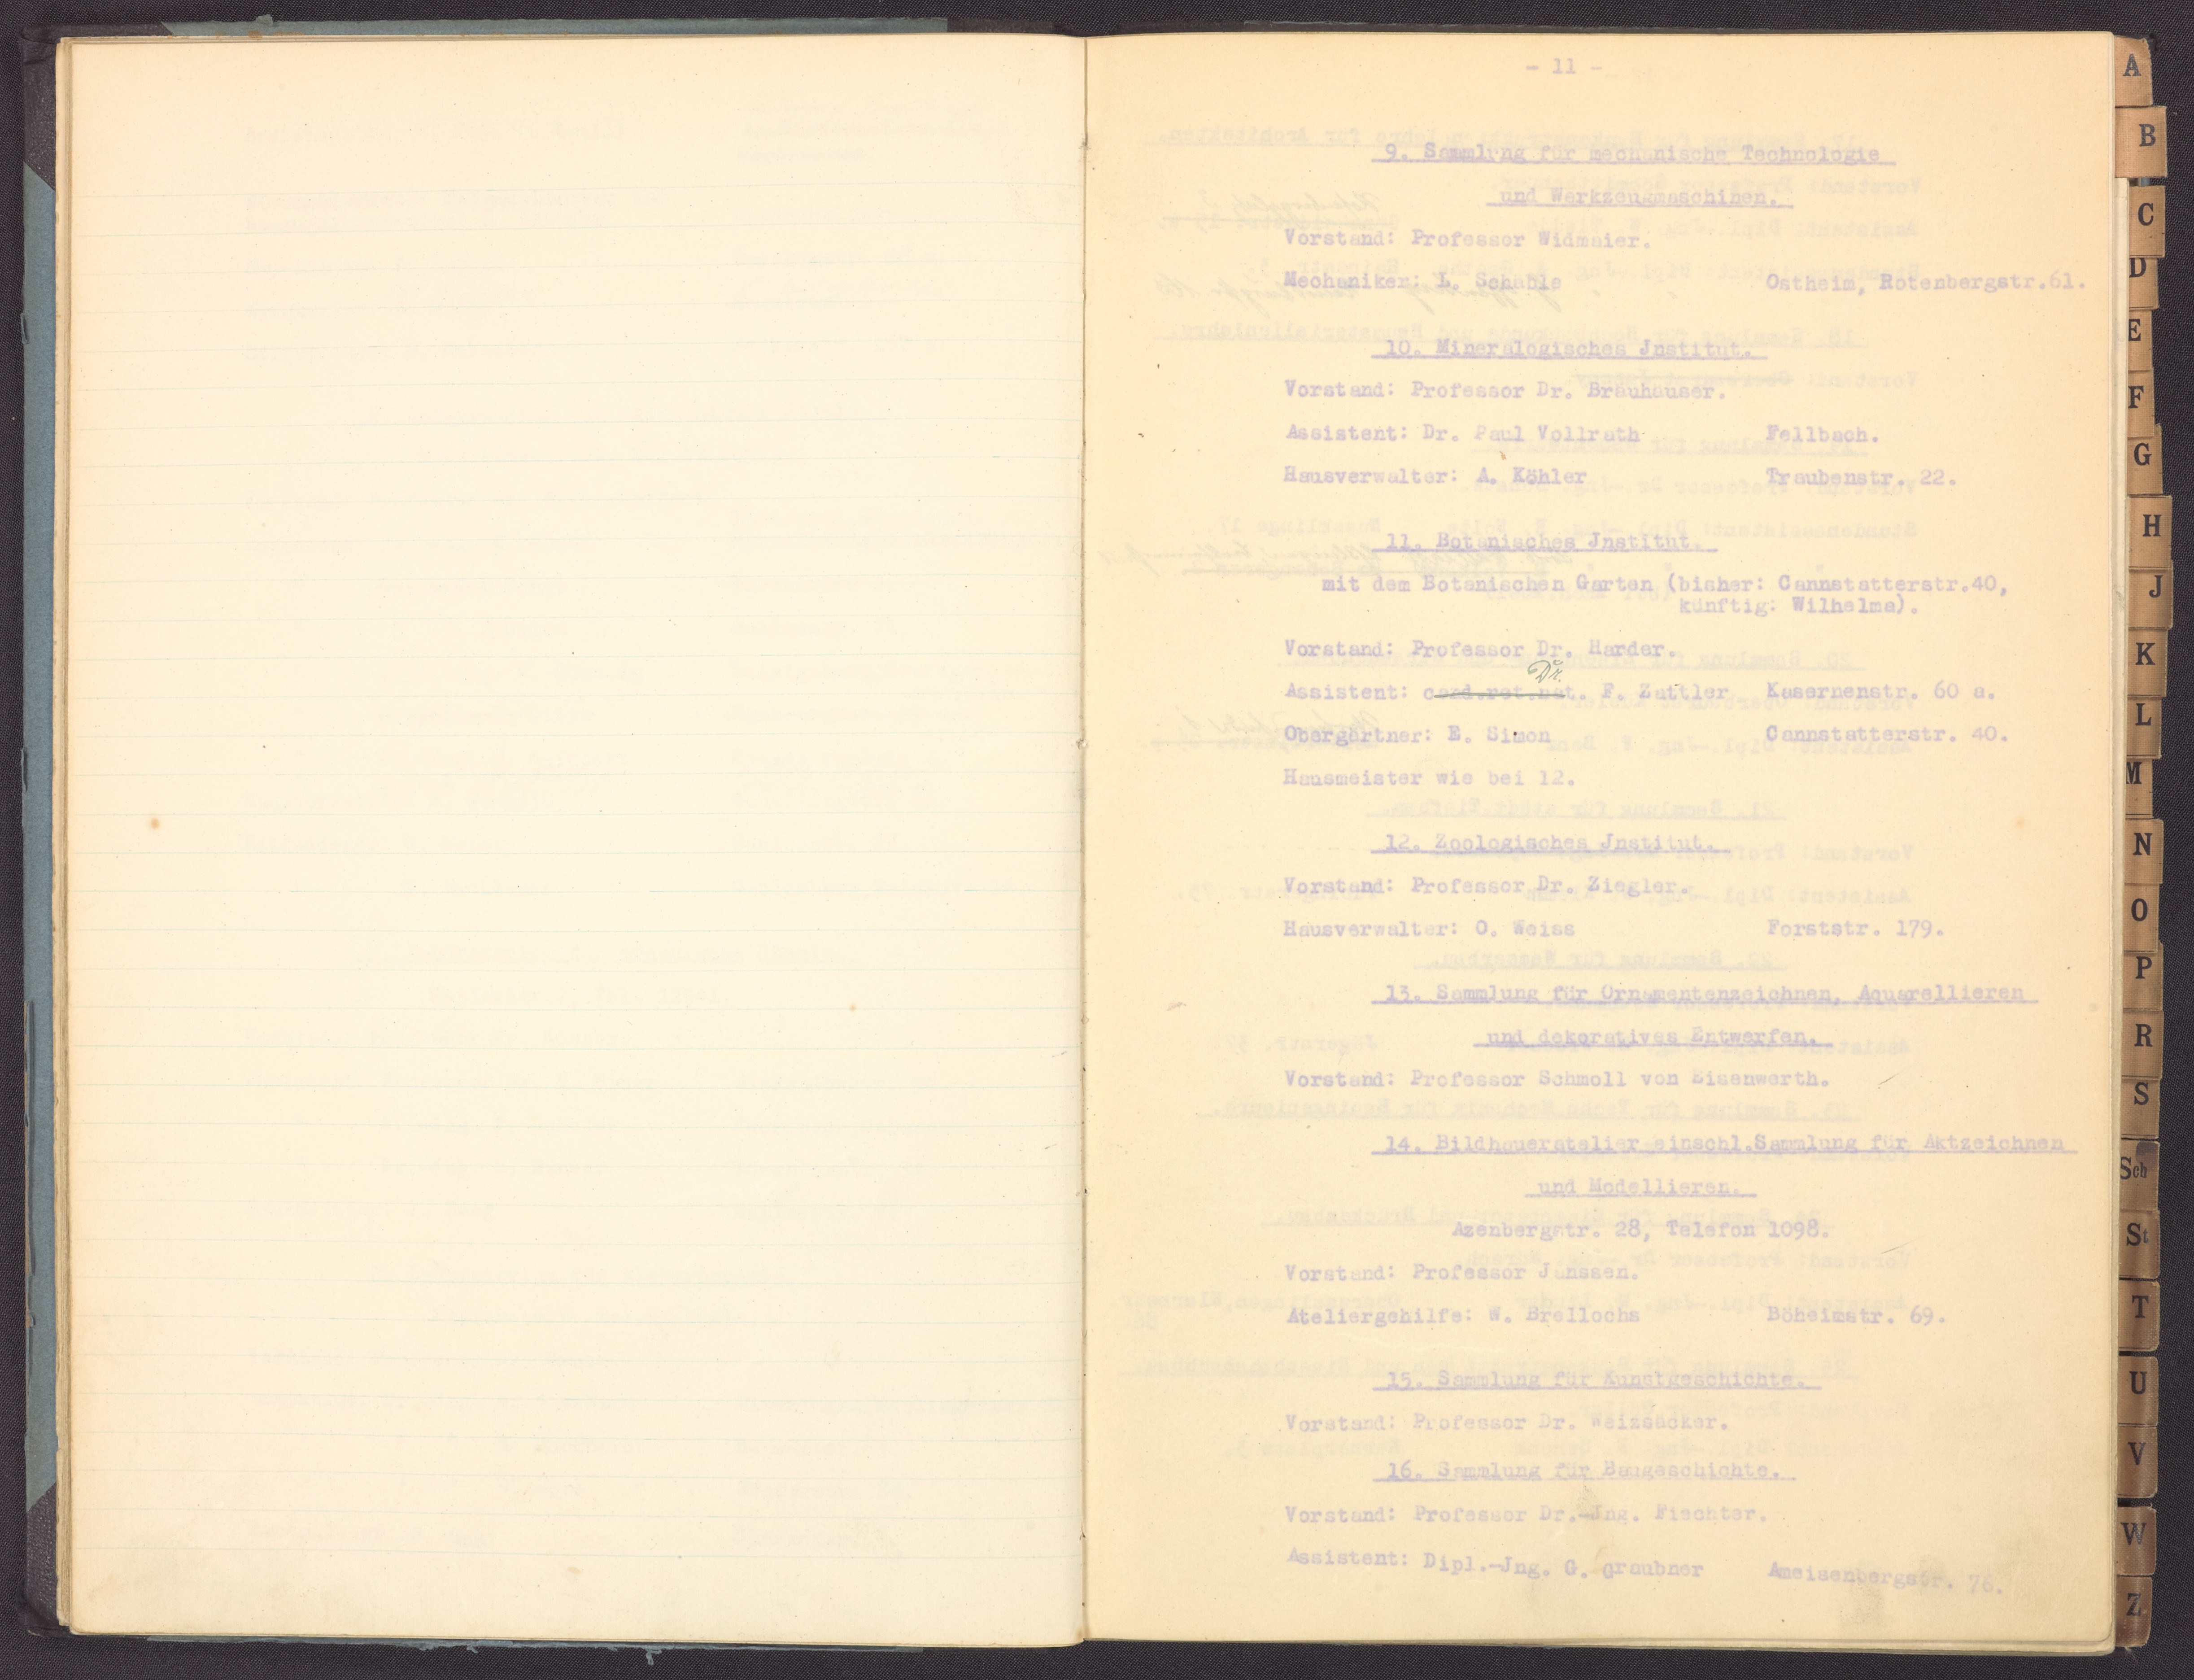 - 11 -
9. Sammlung für mechanische Technologie
und Werkzeugmaschinen.
Vorstand: Professor Widmaier.
Mechaniker: L. Schable Ostheim, Rotenbergstr.61.
10. Mineralogisches Jnstitut.
Vorstand: Professor Dr. Bräuhäuser.
Assistent: Dr. Paul Vollrath Fellbach.
Hausverwalter: A. Köhler Traubenstr. 22.
11. Botanisches Jnstitut.
mit dem Botanischen Garten (bisher: Cannstatterstr.40,
künftig: Wilhelma).
Vorstand: Professor Dr. Harder.
Dr.
Assistent: cand.rer.nat. F. Zattler Kasernenstr. 60 a.
Obergärtner: E. Simon Cannstatterstr. 40.
Hausmeister wie bei 12.
12. Zoologisches Jnstitut.
Vorstand: Professor Dr. Ziegler.
Hausverwalter: O. Weiss Forststr. 179.
13. Sammlung für Ornamentenzeichnen, Aquarellieren
und dekoratives Entwerfen.
Vorstand: Professor Schmoll von Eisenwerth.
14. Bildhaueratelier einschl.Sammlung für Aktzeichnen
und Modellieren.
Azenbergstr. 28, Telefon 1098.
Vorstand: Professor Janssen.
Ateliergehilfe: W. Brellochs Böheimstr. 69.
15. Sammlung für Kunstgeschichte.
Vorstand: Professor Dr. Weizsäcker.
16. Sammlung für Baugeschichte.
Vorstand: Professor Dr.-Jng. Fiechter.
Assistent: Dipl.-Jng. G. Graubner Ameisenbergstr. 76.
A
B
C
D
E
F
G
H
J
K
L
M
N
O
P
R
S
Sch
St
T
U
V
W
Z